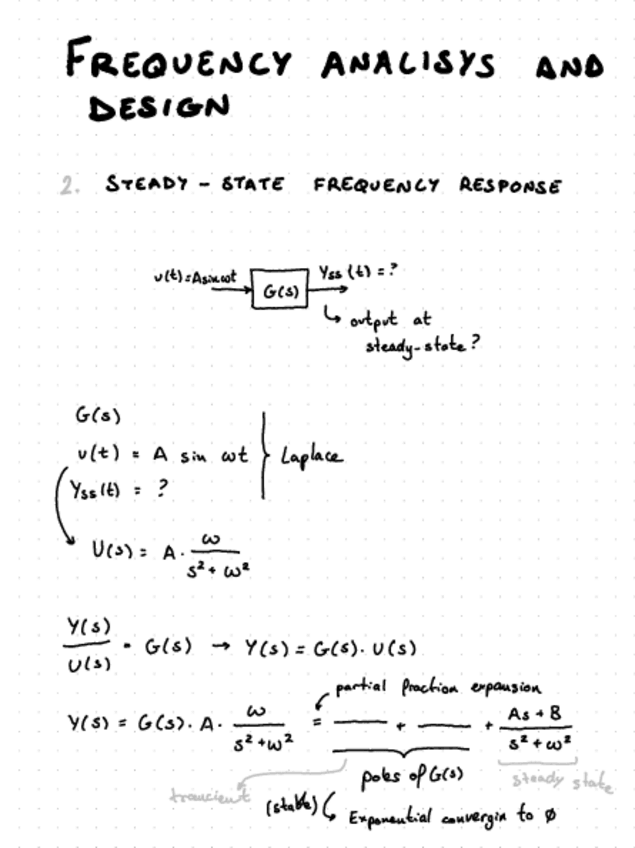 FREQUENCY ANALISYS AND
DESIGN
2. STEADY-STATE FREQUENCY RESPONSE
u(t)=A sin ωt
G(s)
Yss(t) = ?
output at
steady-state?
G(s)
u(t) = A sin ωt
Laplace
Yss(t) = ?
U(s) = A · ω/(s² + ω²)
Y(s)/U(s) = G(s) → Y(s) = G(s) · U(s)
partial fraction expansion
Y(s) = G(s) · A · ω/(s² + ω²) = ___ + ___ + (As + B)/(s² + ω²)
trancient
poles of G(s)
steady state
(stable)
Exponential convergin to 0